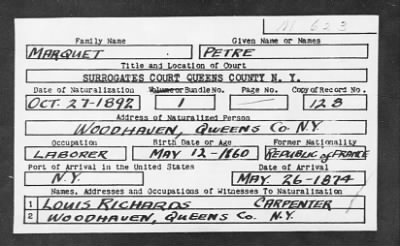 M 623
Family Name Given Name or Names
MARQUET PETRE
Title and Location of Court
SURROGATES COURT QUEENS COUNTY N. Y.
Date of Naturalization Volume or Bundle No. Page No. Copy of Record No.
OCT. 27-1892 1 — 128
Address of Naturalized Person
WOODHAVEN, QUEENS Co. N.Y.
Occupation Birth Date or Age Former Nationality
LABORER MAY 12-1860 REPUBLIC of FRANCE
Port of Arrival in the United States Date of Arrival
N.Y. MAY-26-1874
Names, Addresses and Occupations of Witnesses To Naturalization
1 LOUIS RICHARDS CARPENTER
2 WOODHAVEN, QUEENS Co. N.Y.